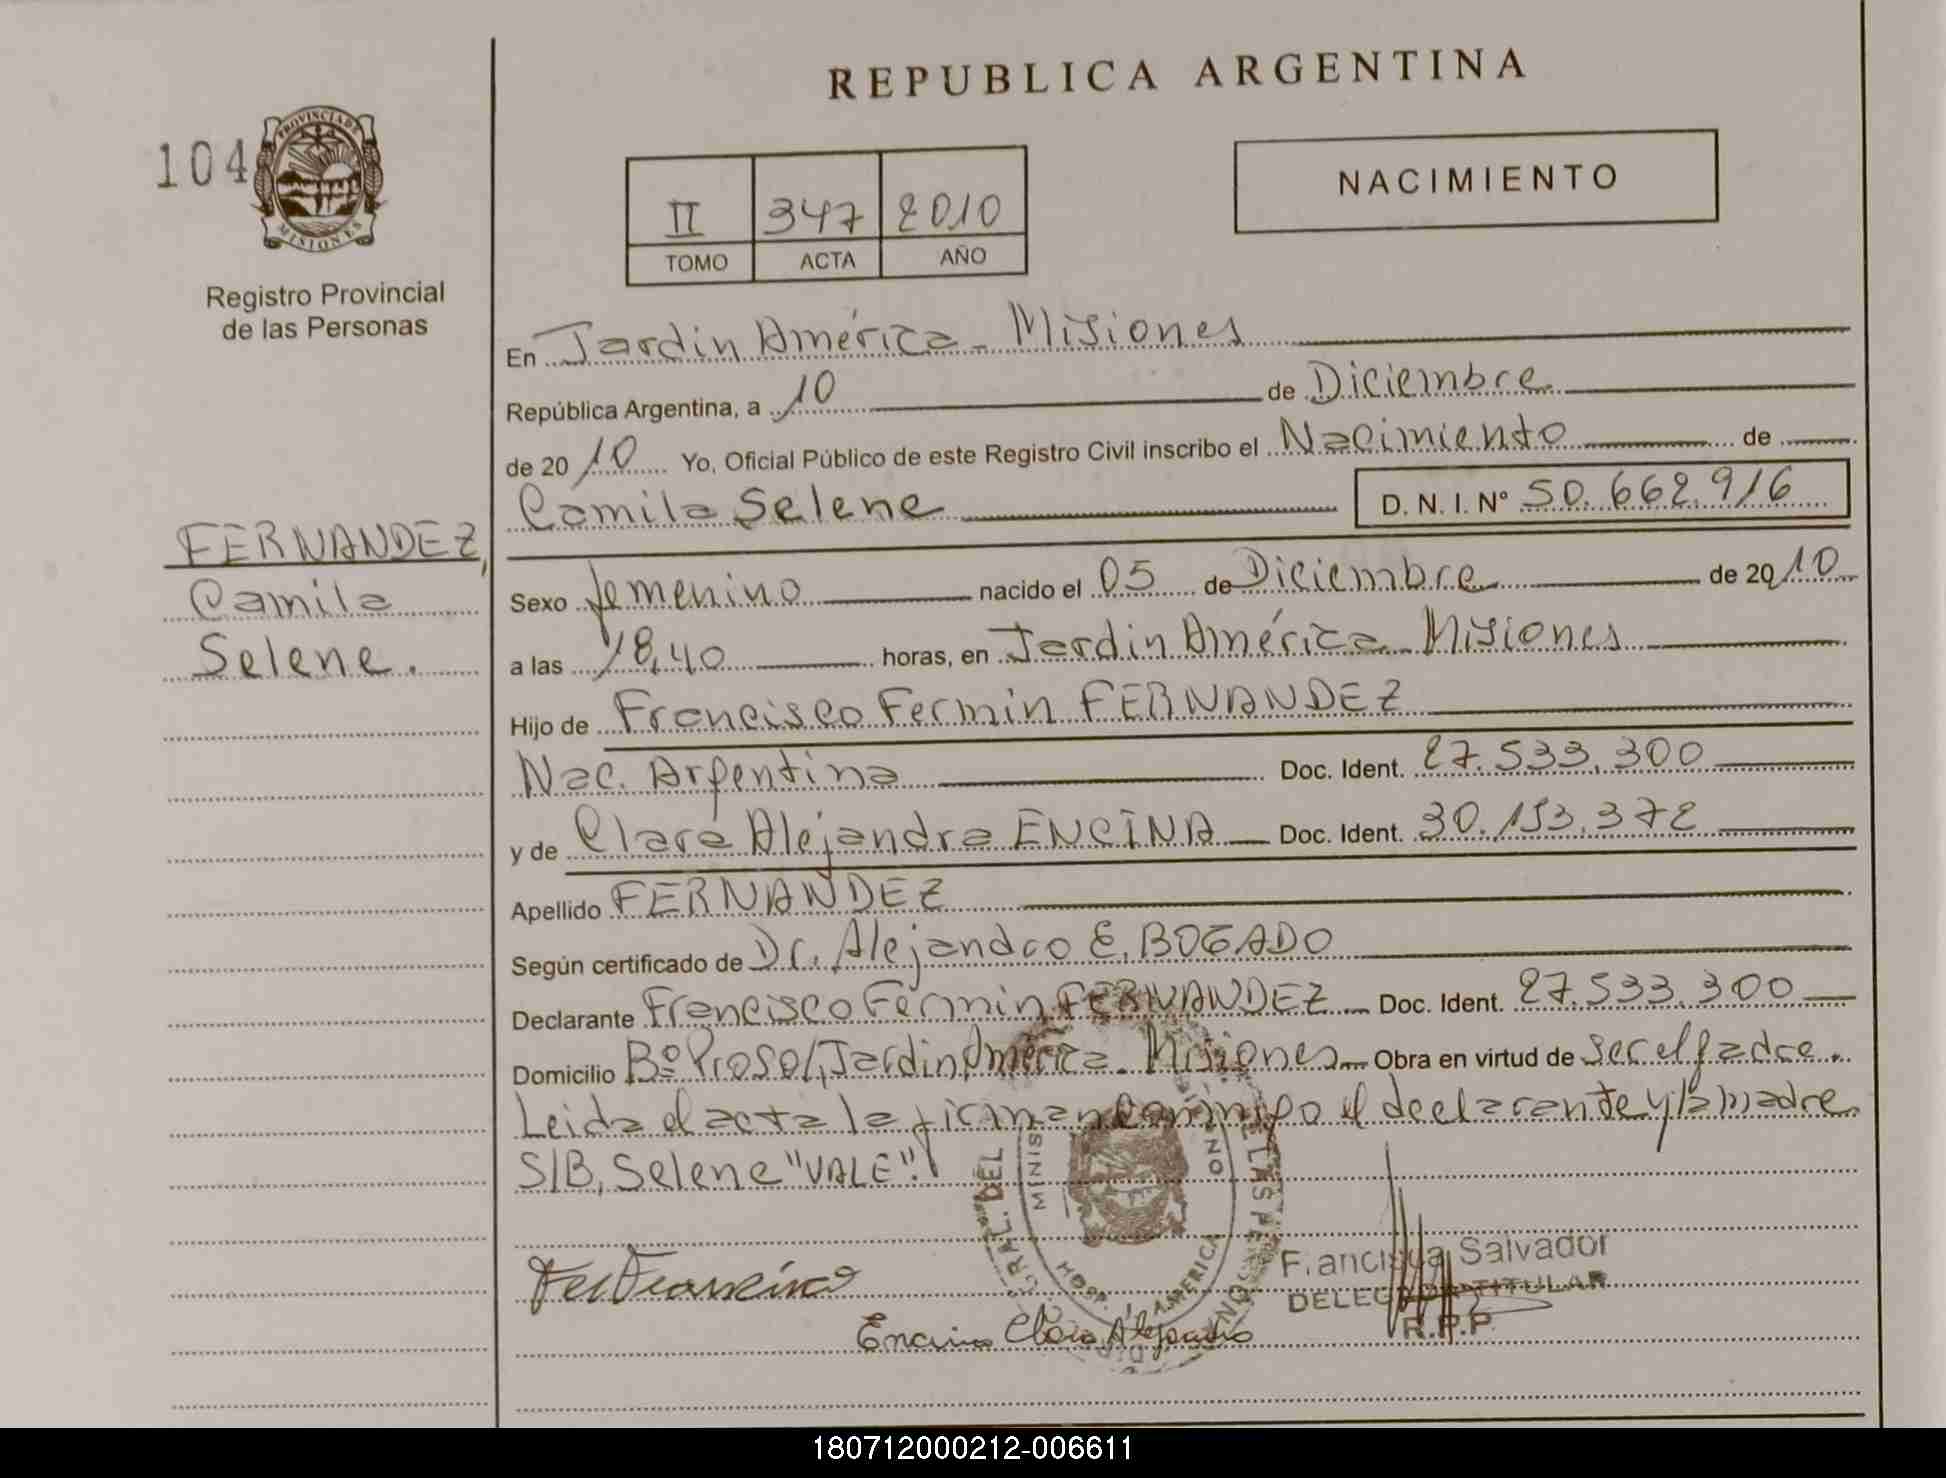 REPUBLICA ARGENTINA
104
PROVINCIA DE
MISIONES
Registro Provincial
de las Personas
II 347 2010
TOMO ACTA AÑO
NACIMIENTO
En Jardin América - Misiones
República Argentina, a 10 de Diciembre
de 2010 Yo, Oficial Público de este Registro Civil inscribo el Nacimiento de
Camila Selene D. N. I. Nº 50.662.916
FERNANDEZ,
Camila
Selene.
Sexo femenino nacido el 05 de Diciembre de 2010
a las 18,40 horas, en Jardin América Misiones
Hijo de Francisco Fermin FERNANDEZ
Nac. Argentina Doc. Ident. 27.533.300
y de Clara Alejandra ENCINA Doc. Ident. 30.153.372
Apellido FERNANDEZ
Según certificado de Dr. Alejandro E. BOGADO
Declarante Francisco Fermin FERNANDEZ Doc. Ident. 27.533.300
Domicilio Bº Prosol, Jardin América - Misiones Obra en virtud de ser el padre.
Leida el acta la firman conmigo el declarante y la madre
S/B, Selene "VALE".
GRAL. DEL
MINIS
HOSP.
J. AMERICA
LAS PE
Encina Clara Alejandra
Salvador
TITULAR
R.P.P
180712000212-006611